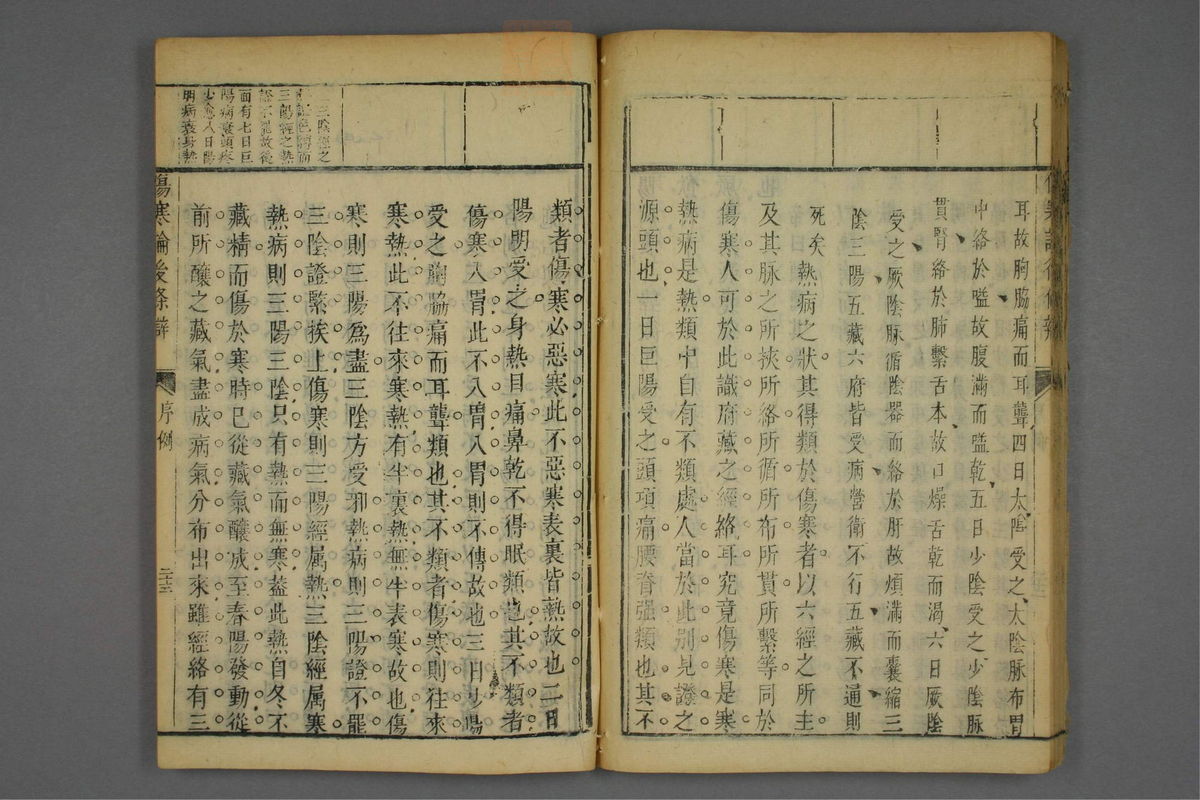 耳故胸脇痛而耳聾四日太陰受之太陰脉布胃
中絡於嗌故腹滿而嗌乾五日少陰受之少陰脉
貫腎絡於肺繫舌本故口燥舌乾而渴六日厥陰
受之厥陰脉循陰器而絡於肝故煩滿而囊縮三
陰三陽五藏六府皆受病營衛不行五藏不通則
死矣熱病之狀其得類於傷寒者以六經之所主
及其脉之所挾所絡所循所布所貫所繫等同於
傷寒人可於此識府藏之經絡耳究竟傷寒是寒
熱病是熱類中自有不類處人當於此別見證之
源頭也一日巨陽受之頭項痛腰脊强類也其不
類者傷寒必惡寒此不惡寒表裏皆熱故也二日
陽明受之身熱目痛鼻乾不得眠類也其不類者
傷寒入胃此不入胃入胃則不傳故也三日少陽
受之胸脇痛而耳聾類也其不類者傷寒則往來
寒熱此不往來寒熱有半裏熱無半表寒故也傷
寒則三陽爲盡三陰方受邪熱病則三陽證不罷
三陰證緊挨上傷寒則三陽經属熱三陰經属寒
熱病則三陽三陰只有熱而無寒葢此熱自冬不
藏精而傷於寒時已從藏氣釀成至春陽發動從
前所釀之藏氣盡成病氣分布出來雖經絡有三
三陰經之
三陽經之熱
證不罷故後
面有七日巨
陽病衰頭疼
少愈八日陽
明病衰身熱
傷寒論後條辨
序例
二十三